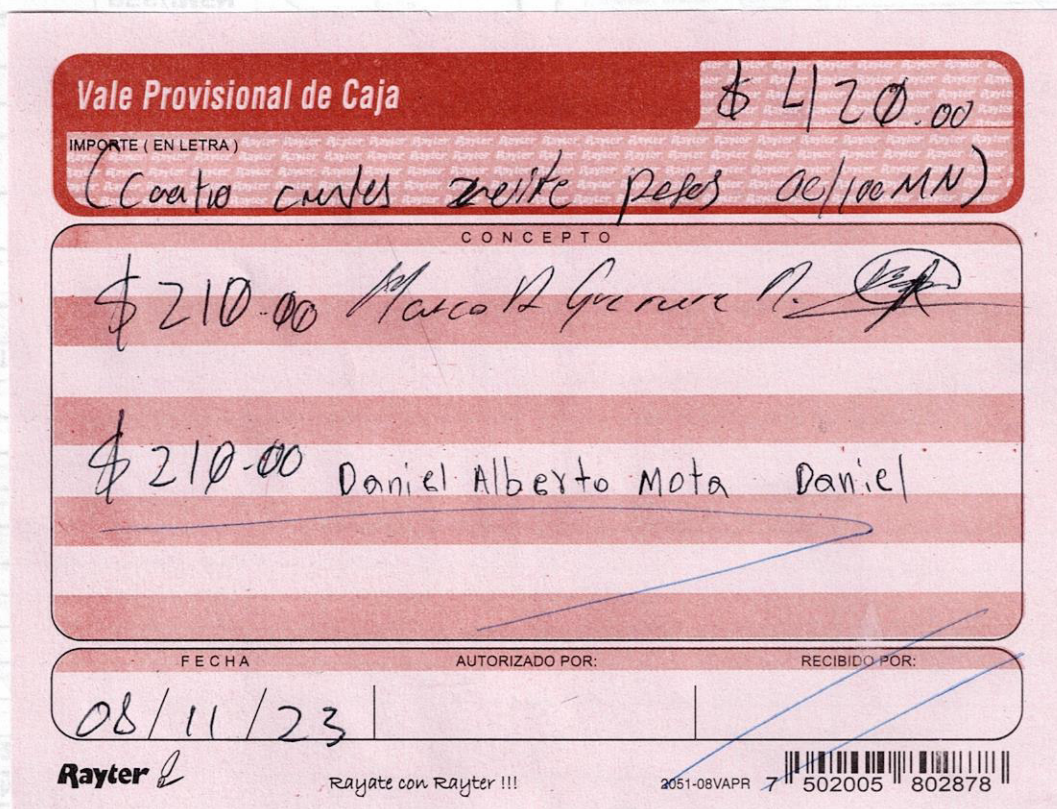 Vale Provisional de Caja
$ 420.00
IMPORTE ( EN LETRA )
(Cuatro cientos veinte pesos 00/100 MN)
CONCEPTO
$210.00 Marco A Guerrero M.
$210.00 Daniel Alberto Mota Daniel
FECHA AUTORIZADO POR: RECIBIDO POR:
08/11/23
Rayter Rayate con Rayter !!! 2051-08VAPR 7 502005 802878